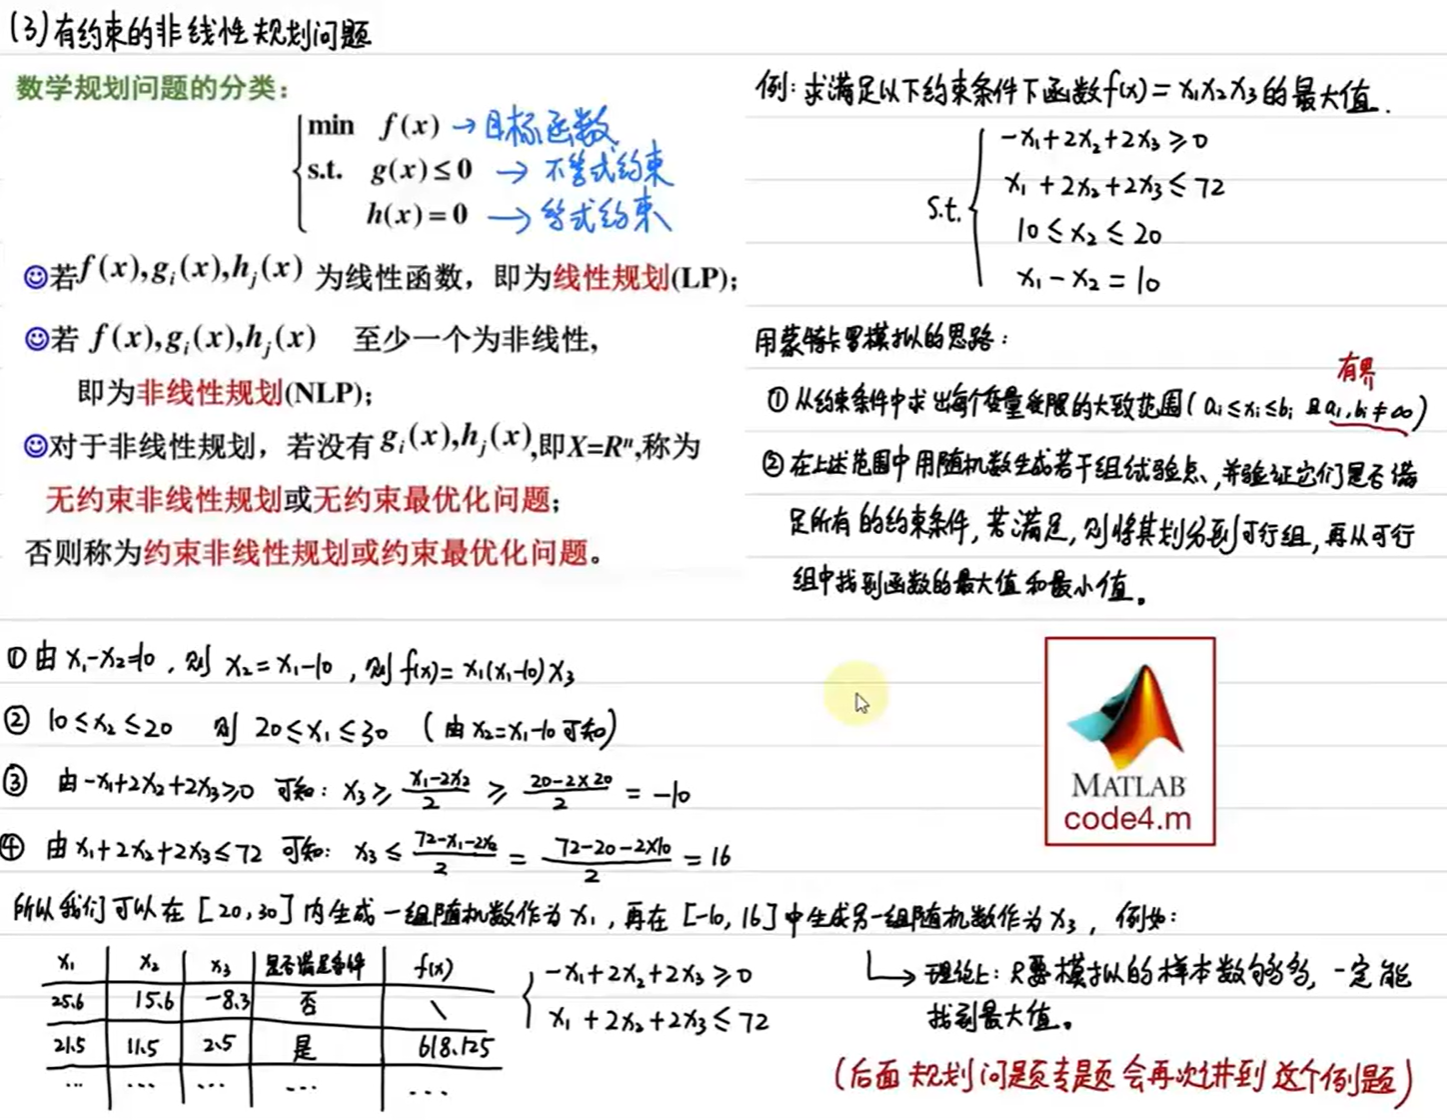 (3)有约束的非线性规划问题
数学规划问题的分类：
min f(x) → 目标函数
s.t. g(x)≤0 → 不等式约束
h(x)=0 → 等式约束
若f(x),g_i(x),h_j(x) 为线性函数，即为线性规划(LP)；
若 f(x),g_i(x),h_j(x) 至少一个为非线性,
即为非线性规划(NLP)；
对于非线性规划，若没有g_i(x),h_j(x),即X=Rⁿ,称为
无约束非线性规划或无约束最优化问题；
否则称为约束非线性规划或约束最优化问题。
例：求满足以下约束条件下函数f(x)=x₁x₂x₃的最大值.
s.t.
-x₁+2x₂+2x₃≥0
x₁+2x₂+2x₃≤72
10≤x₂≤20
x₁-x₂=10
用蒙特卡罗模拟的思路：
有界
①从约束条件中求出每个变量受限的大致范围(aᵢ≤xᵢ≤bᵢ 且aᵢ,bᵢ≠∞)
②在上述范围中用随机数生成若干组试验点,并验证它们是否满
足所有的约束条件,若满足,则将其划分到可行组,再从可行
组中找到函数的最大值和最小值。
①由x₁-x₂=10，则x₂=x₁-10，则f(x)=x₁(x₁-10)x₃
②10≤x₂≤20 则20≤x₁≤30 (由x₂=x₁-10可知)
③ 由-x₁+2x₂+2x₃≥0 可知：x₃≥(x₁-2x₂)/2≥(20-2×20)/2=-10
④ 由x₁+2x₂+2x₃≤72 可知：x₃≤(72-x₁-2x₂)/2=(72-20-2×10)/2=16
MATLAB
code4.m
所以我们可以在[20,30]内生成一组随机数作为x₁,再在[-10,16]中生成另一组随机数作为x₃，例如：
x₁ x₂ x₃ 是否满足条件 f(x)
25.6 15.6 -8.3 否 \
21.5 11.5 2.5 是 618.125
... ... ... ... ...
-x₁+2x₂+2x₃≥0
x₁+2x₂+2x₃≤72
→理论上：只要模拟的样本数够多,一定能
找到最大值。
(后面规划问题专题会再次讲到这个例题)